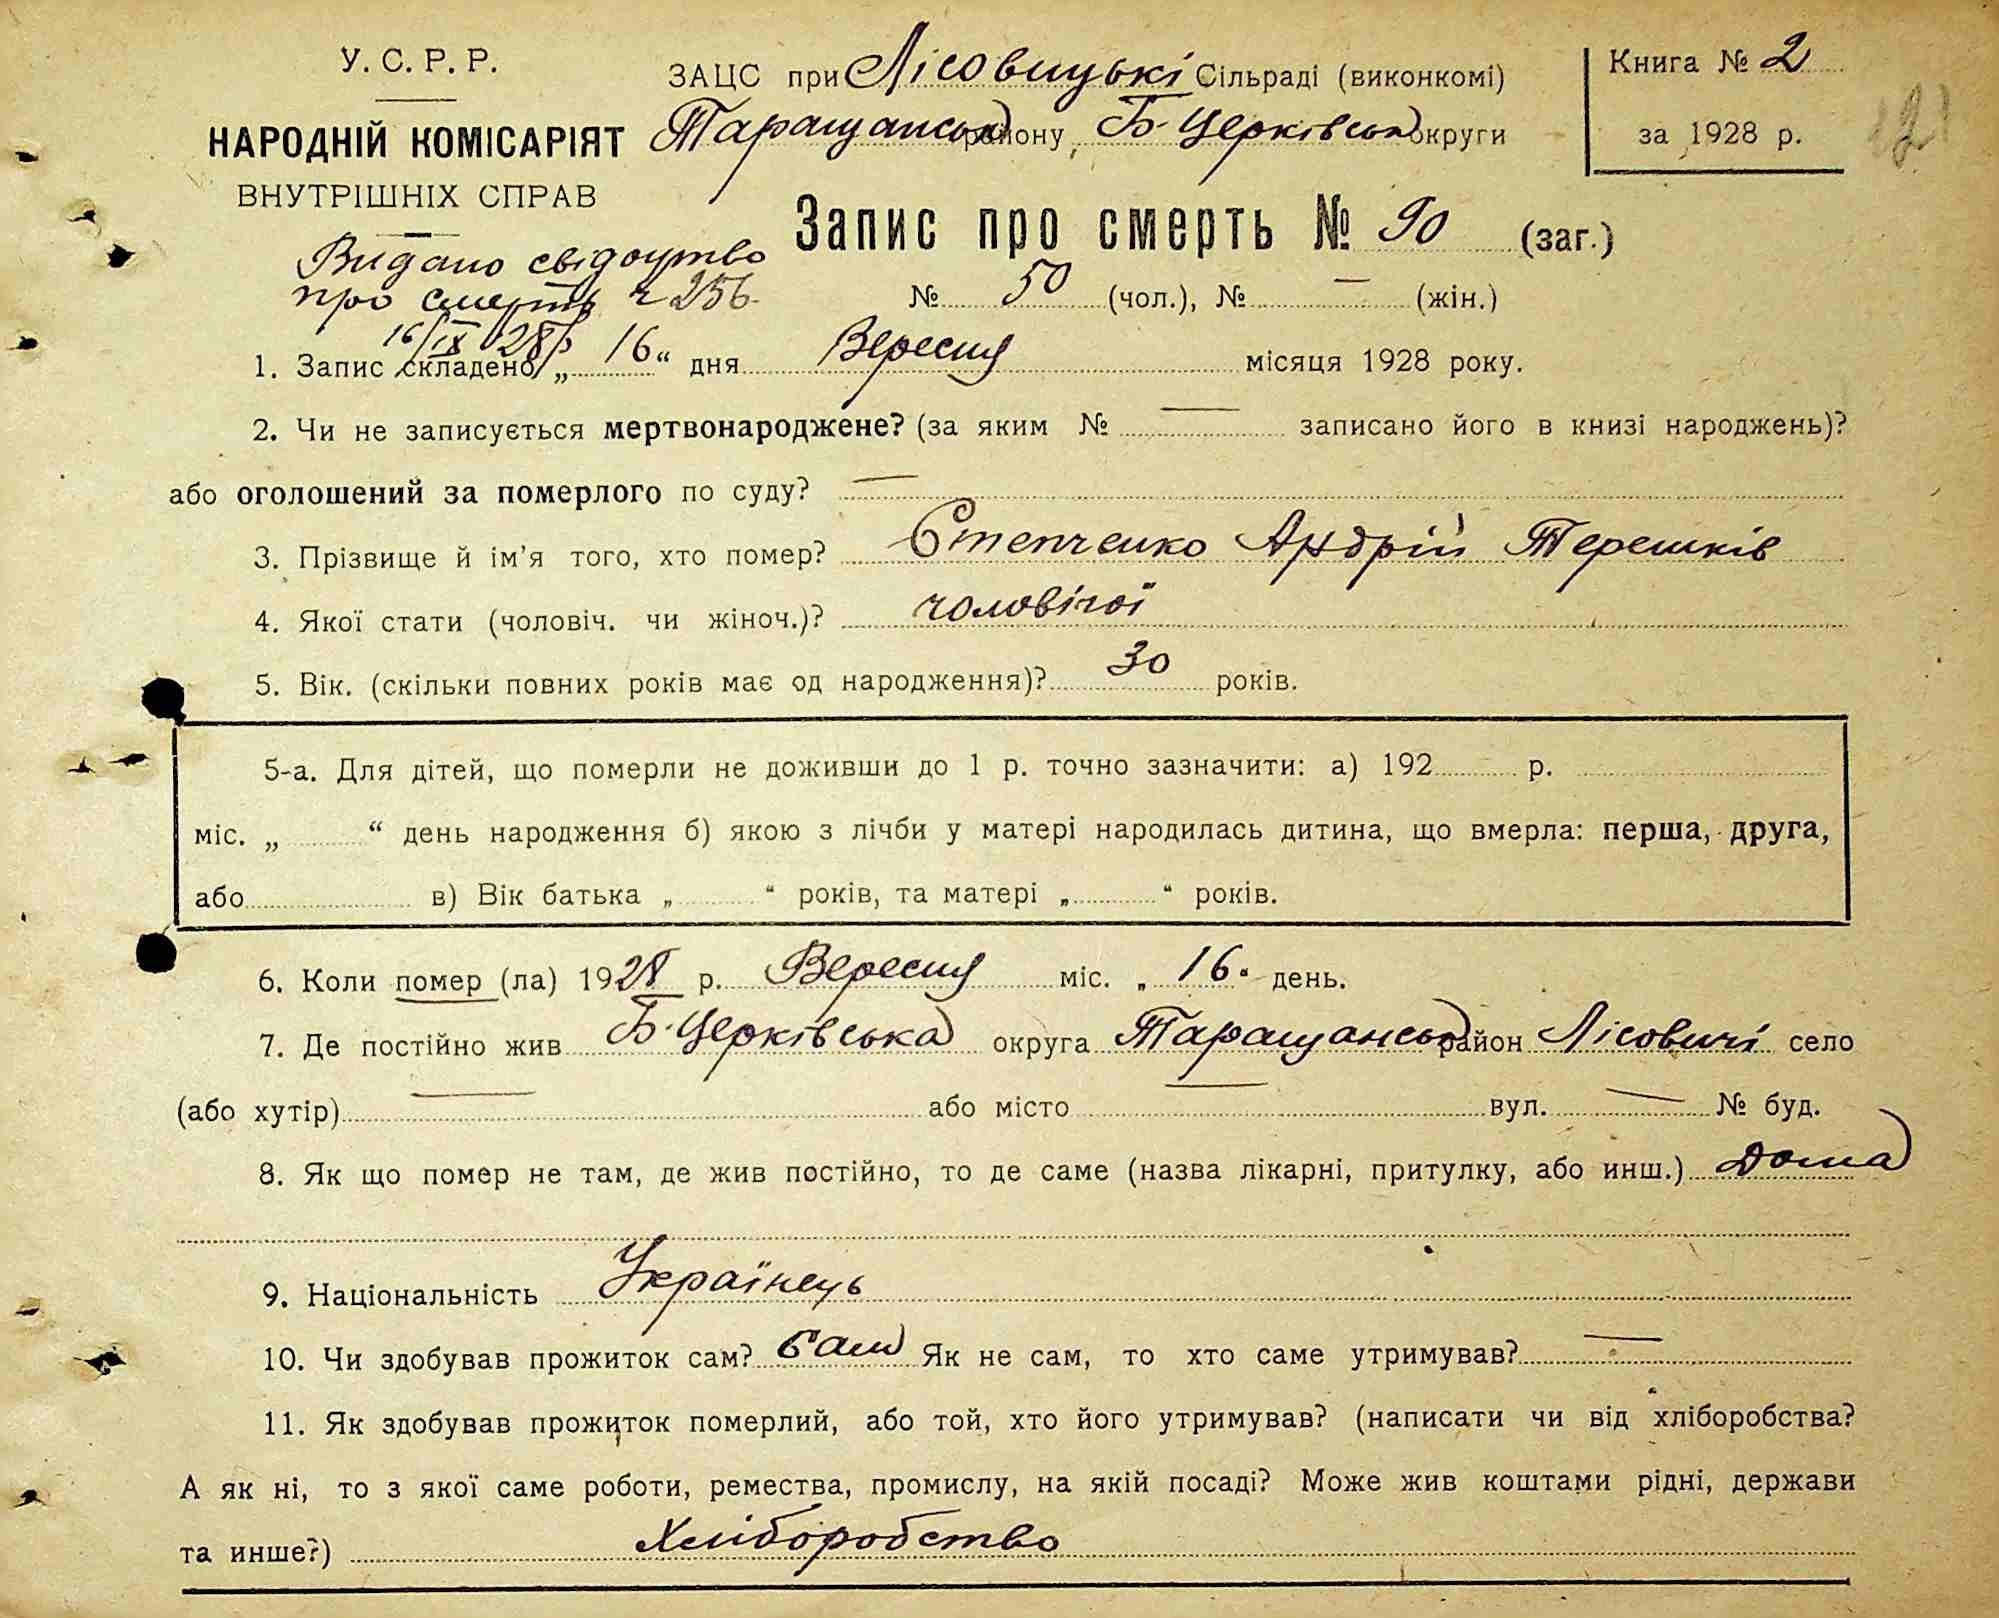 У. С. Р. Р.
НАРОДНІЙ КОМІСАРІЯТ
ВНУТРІШНІХ СПРАВ
ЗАЦС при Лісовицькі Сільраді (виконкомі)
Таращанськ району, Б-Церківська округи
Книга № 2
за 1928 р.
Запис про смерть № 90 (заг.)
№ 50 (чол.), № — (жін.)
Видано свідоцтво
про смерть ч 256
16/IX 28 р
1. Запис складено „ 16 “ дня Вересня місяця 1928 року.
2. Чи не записується мертвонароджене? (за яким № — записано його в книзі народжень)?
або оголошений за померлого по суду? —
3. Прізвище й ім’я того, хто помер? Степченко Андрій Терешків
4. Якої стати (чоловіч. чи жіноч.)? чоловічої
5. Вік. (скільки повних років має од народження)? 30 років.
5-а. Для дітей, що померли не доживши до 1 р. точно зазначити: а) 192 р.
міс. „ “ день народження б) якою з лічби у матері народилась дитина, що вмерла: перша, друга,
або в) Вік батька „ “ років, та матері „ “ років.
6. Коли помер (ла) 1928 р. Вересня міс. „ 16 “ день.
7. Де постійно жив Б-Церківська округа Таращанськ район Лісовичі село
(або хутір) — або місто — вул. — № буд.
8. Як що помер не там, де жив постійно, то де саме (назва лікарні, притулку, або инш.) Дома
9. Національність Українець
10. Чи здобував прожиток сам? Сам Як не сам, то хто саме утримував? —
11. Як здобував прожиток померлий, або той, хто його утримував? (написати чи від хліборобства?
А як ні, то з якої саме роботи, ремества, промислу, на якій посаді? Може жив коштами рідні, держави
та инше?) Хліборобство